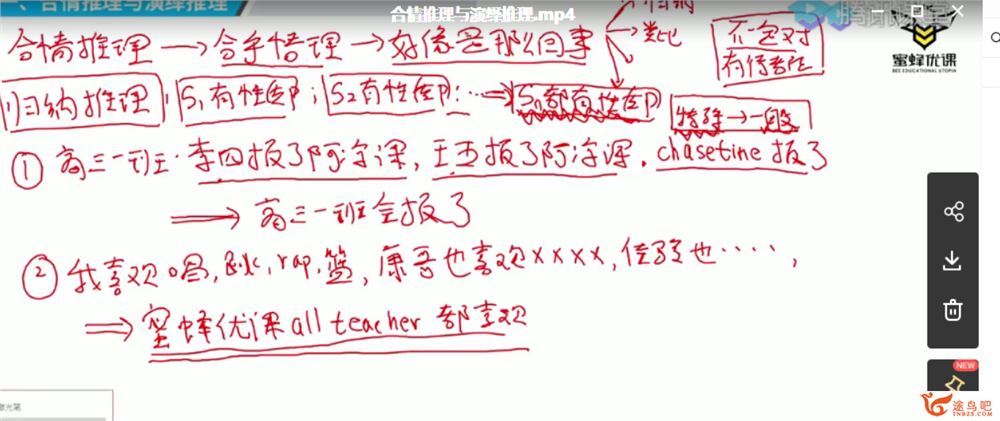 、合情推理与演绎推理
合情推理与演绎推理.mp4
腾讯课堂
合情推理→合乎情理→好像是那么回事
归纳
类比
不一定对
有待考证
蜜蜂优课
BEE EDUCATIONAL UTOPIA
归纳推理:S₁有性质P;S₂有性质P:…⇒Sₙ都有性质P
特殊→一般
① 高三一班:李四报了阿淳课,王五报了阿淳课.chasetine报了
⇒高三一班全报了
② 我喜欢唱,跳,rap,篮,康哥也喜欢××××,佳 也····,
⇒蜜蜂优课all teacher 都喜欢
NEW
激光笔
途鸟吧
TNBZS.COM